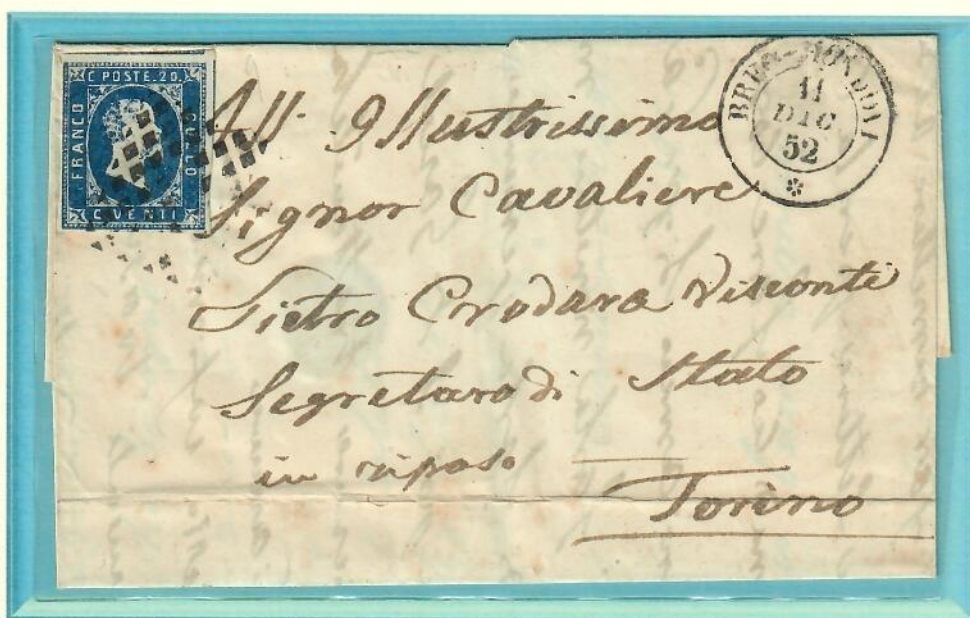 C. POSTE. 20.
FRANCO
BOLLO
C. VENTI
11
DIC
52
All' Illustrissimo
Signor Cavaliere
Pietro Crodara Visconti
Segretaro di Stato
in riposo
Torino